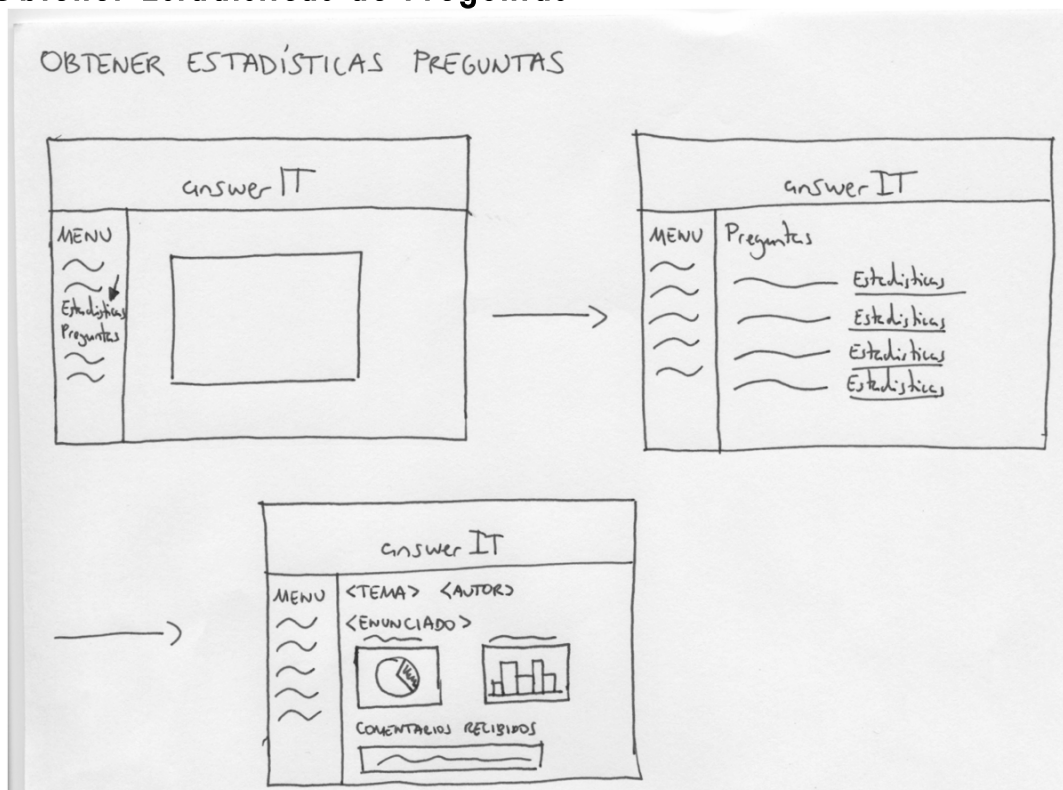 OBTENER ESTADÍSTICAS PREGUNTAS
answer IT
MENU
Estadísticas
Preguntas
answer IT
MENU
Preguntas
Estadisticas
Estadisticas
Estadisticas
Estadisticas
answer IT
MENU
<TEMA> <AUTOR>
<ENUNCIADO>
COMENTARIOS RECIBIDOS